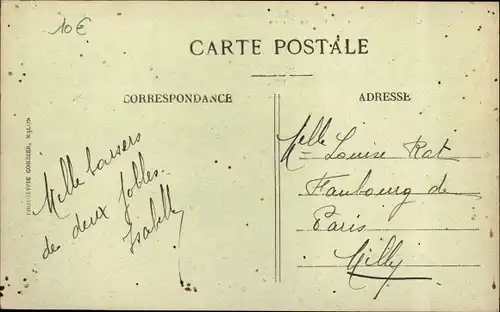 10€
CARTE POSTALE
CORRESPONDANCE
ADRESSE
Mille baisers
de deux folles.
Isabelle
Melle Louise Rat
Faubourg de
Paris
Milly